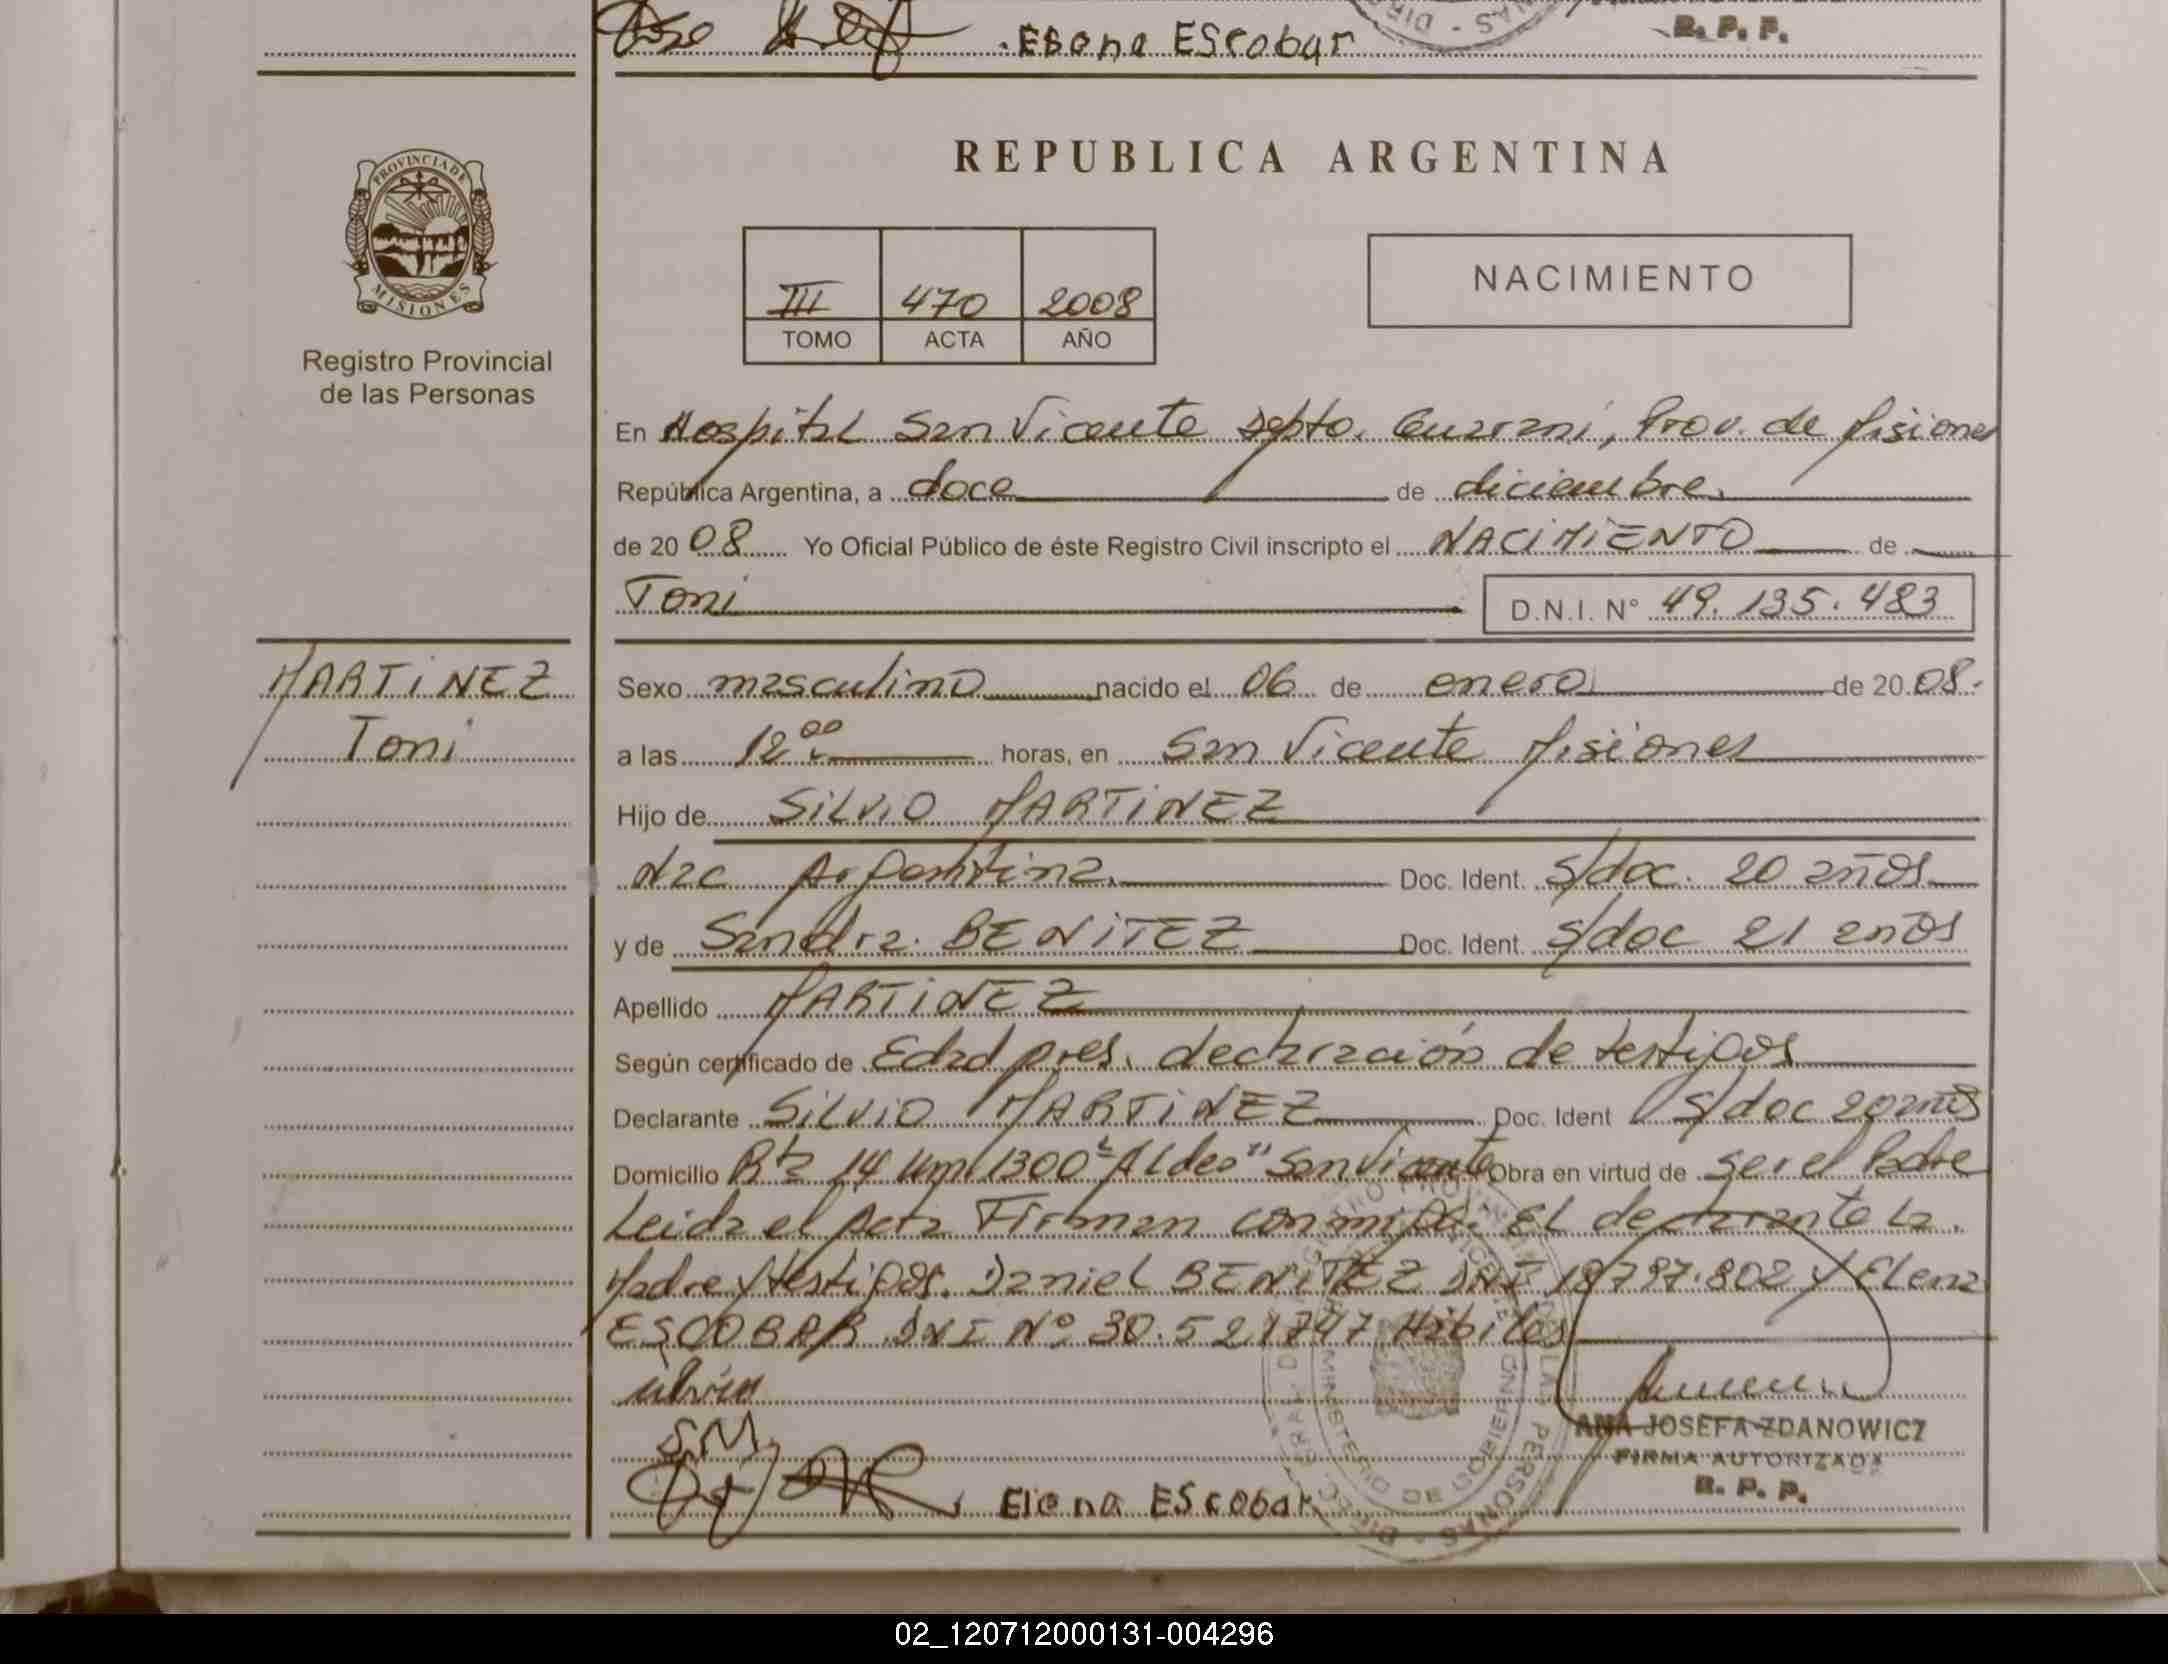 Elena Escobar
R. P. P.
PROVINCIA DE
MISIONES
Registro Provincial
de las Personas
REPUBLICA ARGENTINA
III 470 2008
TOMO ACTA AÑO
NACIMIENTO
En Hospital San Vicente Dpto. Guaraní, Prov. de Misiones
República Argentina, a doce de diciembre
de 2008 Yo Oficial Público de éste Registro Civil inscripto el NACIMIENTO de
Toni D.N.I. N° 49.135.483
MARTINEZ
Toni
Sexo masculino nacido el 06 de enero de 2008.
a las 12 00 horas, en San Vicente Misiones
Hijo de SILVIO MARTINEZ
Nac Argentina. Doc. Ident. S/doc. 20 años
y de Sandra BENITEZ Doc. Ident. S/doc 21 años
Apellido MARTINEZ
Según certificado de Edad pres. declaración de testigos
Declarante SILVIO MARTINEZ Doc. Ident S/doc 20 años
Domicilio Rta 14 Km 1300 Aldea San Vicente Obra en virtud de ser el Padre
Leida el Acta Firman conmigo. El declarante la
Madre y testigos. Daniel BENITEZ DNI 18.797.802 y Elena
ESCOBAR DNI N° 30.521747 Hábiles
S.M.
ANA JOSEFA ZDANOWICZ
FIRMA AUTORIZADA
R. P. P.
Elena Escobar
02_120712000131-004296